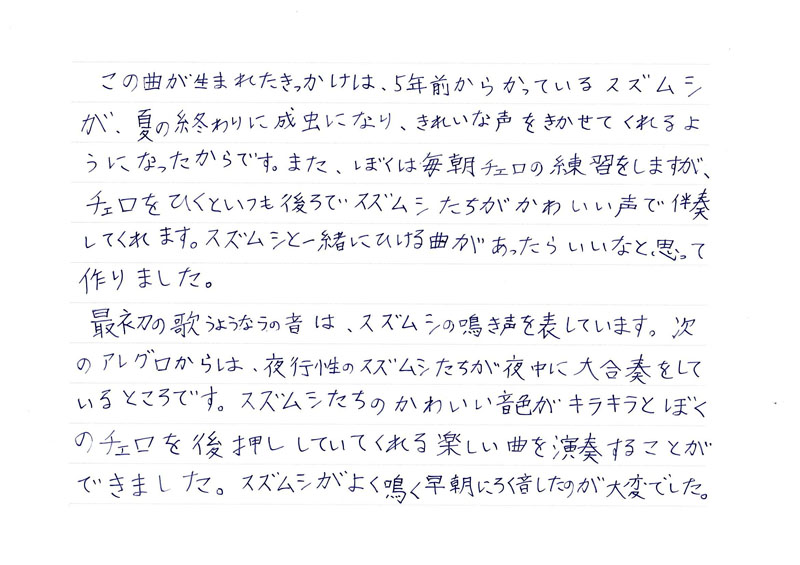 この曲が生まれたきっかけは、5年前からかっているスズムシ
が、夏の終わりに成虫になり、きれいな声をきかせてくれるよ
うになったからです。また、ぼくは毎朝チェロの練習をしますが、
チェロをひくといつも後ろでスズムシたちがかわいい声で伴奏
してくれます。スズムシと一緒にひける曲があったらいいなと思って
作りました。
最初の歌うようなラの音は、スズムシの鳴き声を表しています。次
のアレグロからは、夜行性のスズムシたちが夜中に大合奏をして
いるところです。スズムシたちのかわいい音色がキラキラとぼく
のチェロを後押ししていてくれる楽しい曲を演奏することが
できました。スズムシがよく鳴く早朝にろく音したのが大変でした。